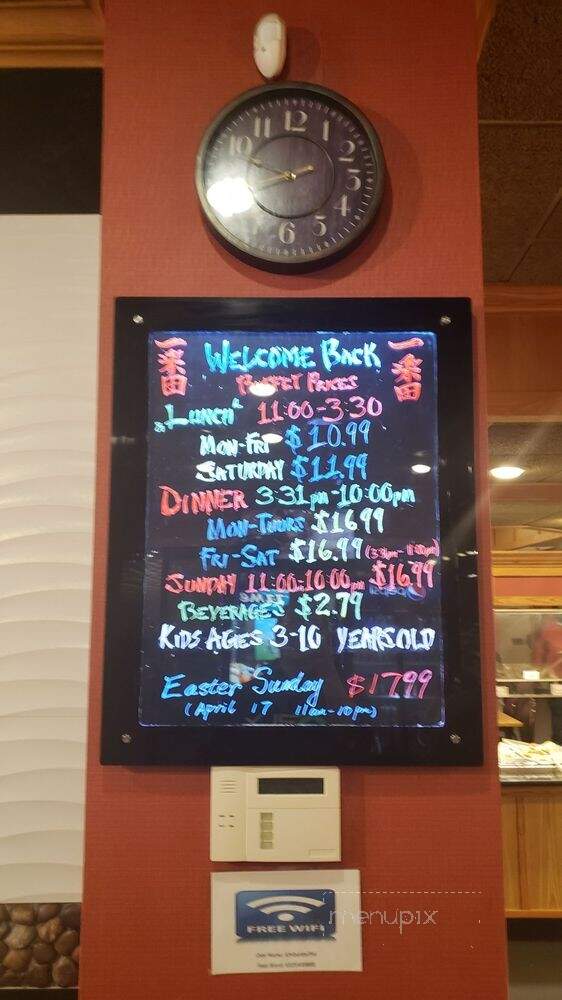 12
1
2
3
4
5
6
10
11
一楽田
WELCOME BACK
一楽田
BUFFET PRICES
"LUNCH" 11:00-3:30
MON-FRI $10.99
SATURDAY $11.99
DINNER 3:31pm-10:00pm
MON-THURS $16.99
FRI-SAT $16.99 (3:31pm-11:00pm)
SUNDAY 11:00am-10:00pm $16.99
BEVERAGES $2.79
KIDS AGES 3-10 YEARS OLD
Easter Sunday $17.99
(April 17 11am-10pm)
FREE WIFI
menupix